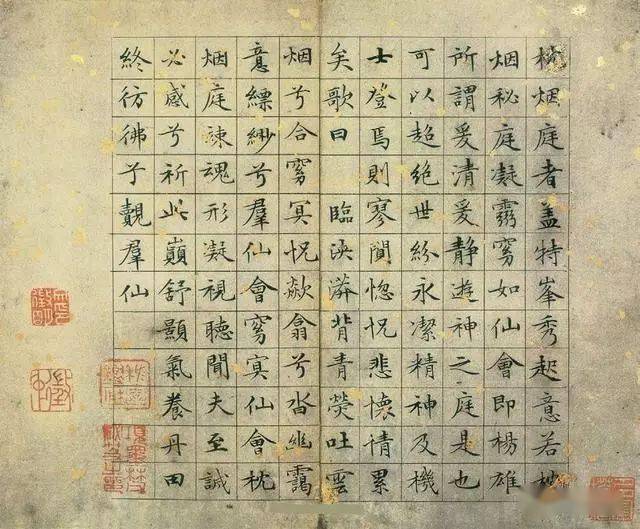 枕烟庭者盖特峯秀起意若枕
烟秘庭凝靄窅如仙會即楊雄
所謂爰清爰静遊神之庭是也
可以超絕世紛永潔精神及機
士登焉則寥闃惚怳悲懷情累
矣歌曰 臨泱漭背青熒吐雲
烟兮合窅冥怳欻翕兮沓幽靄
意縹緲兮羣仙會窅冥仙會枕
烟庭竦魂形凝視聽聞夫至誠
必感兮祈此巔舒顥氣養丹田
終彷彿予覿羣仙